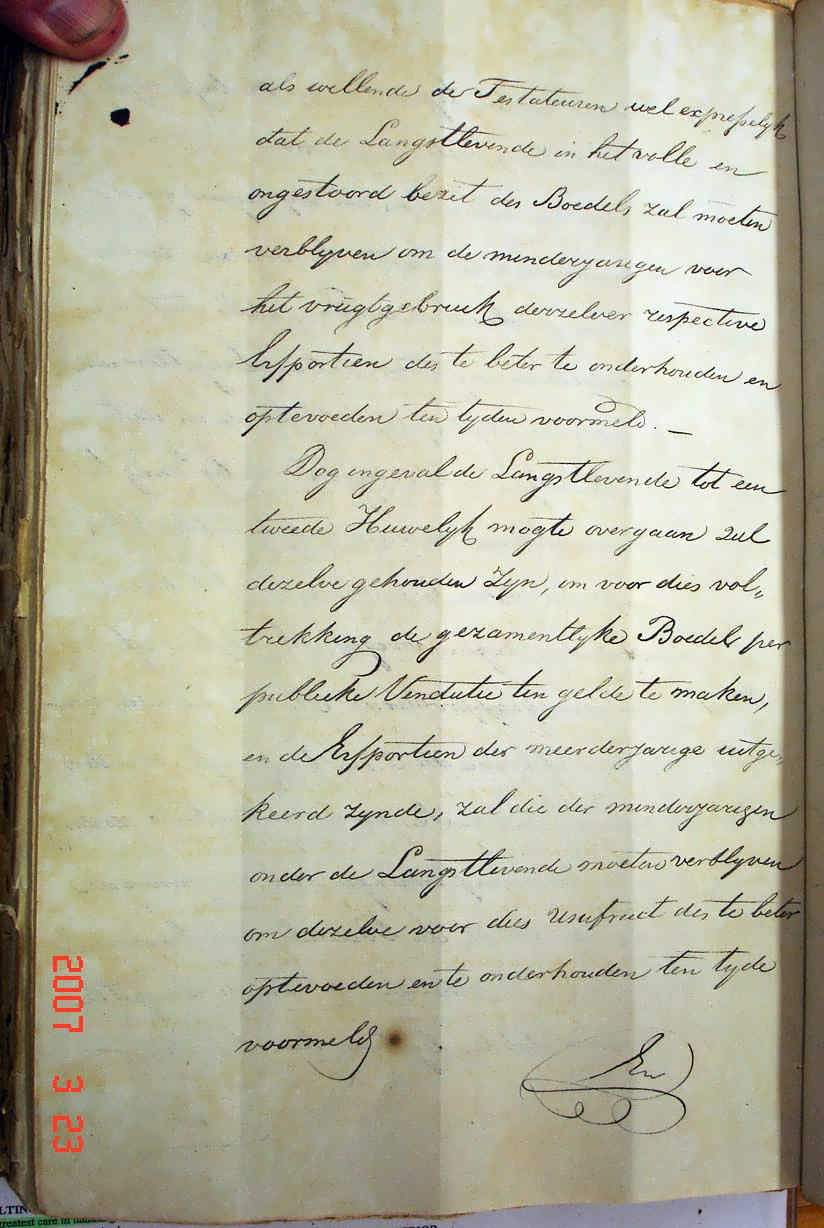 als willende de Testateuren wel expresselyk
dat de Langstlevende in het volle en
ongestoord bezit des Boedels zal moeten
verblyven om de minderjarigen voor
het vrugtgebruik derzelver respective
Erfportien des te beter te onderhouden en
optevoeden ten tyden voormeld. —
Dog ingeval de Langstlevende tot een
tweede Huwelyk mogte overgaan zal
dezelve gehouden zyn, om voor dies vol„
trekking de gezamentlyke Boedel per
publieke Vendutie ten gelde te maken,
en de Erfportien der meerderjarige uitge„
keerd zynde, zal die der minderjarigen
onder de Langstlevende moeten verblyven
om dezelve voor dies Usufruct des te beter
optevoeden en te onderhouden ten tyde
voormeld
En
2007 3 23